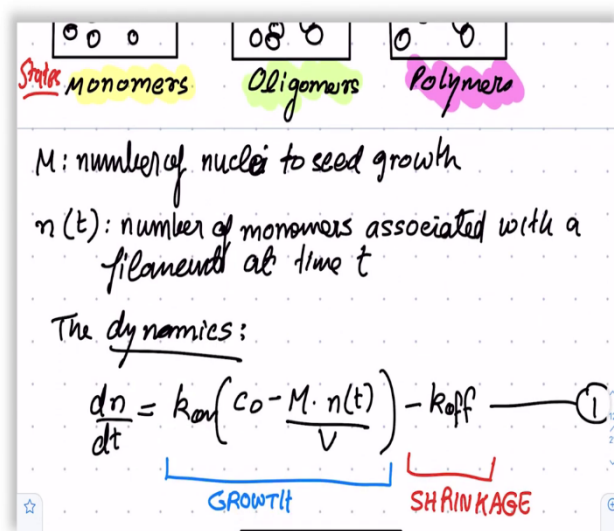 States Monomers Oligomers Polymers
M: number of nuclei to seed growth
n(t): number of monomers associated with a
filament at time t
The dynamics:
dn/dt = kon(C0 - M· n(t)/V) - koff ——— ①
GROWTH SHRINKAGE